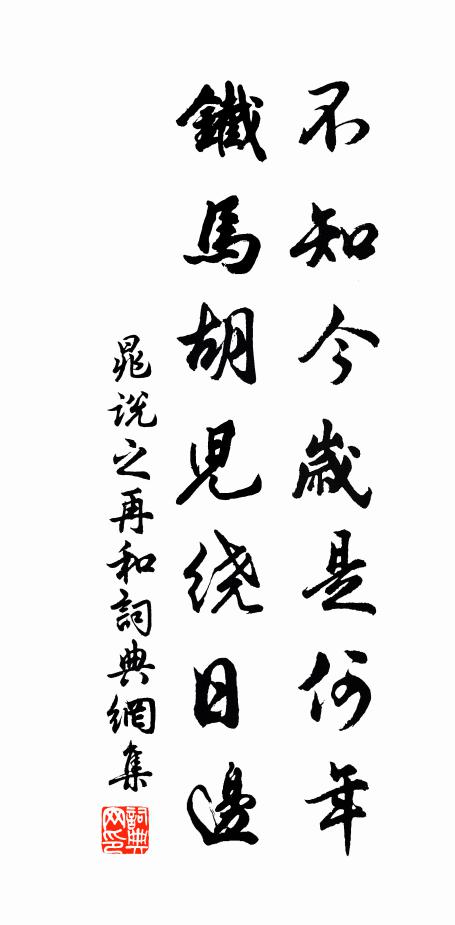 不知今歲是何年
鐵馬胡兒绕日邊
晁说之再和詞典網集
詞典网印